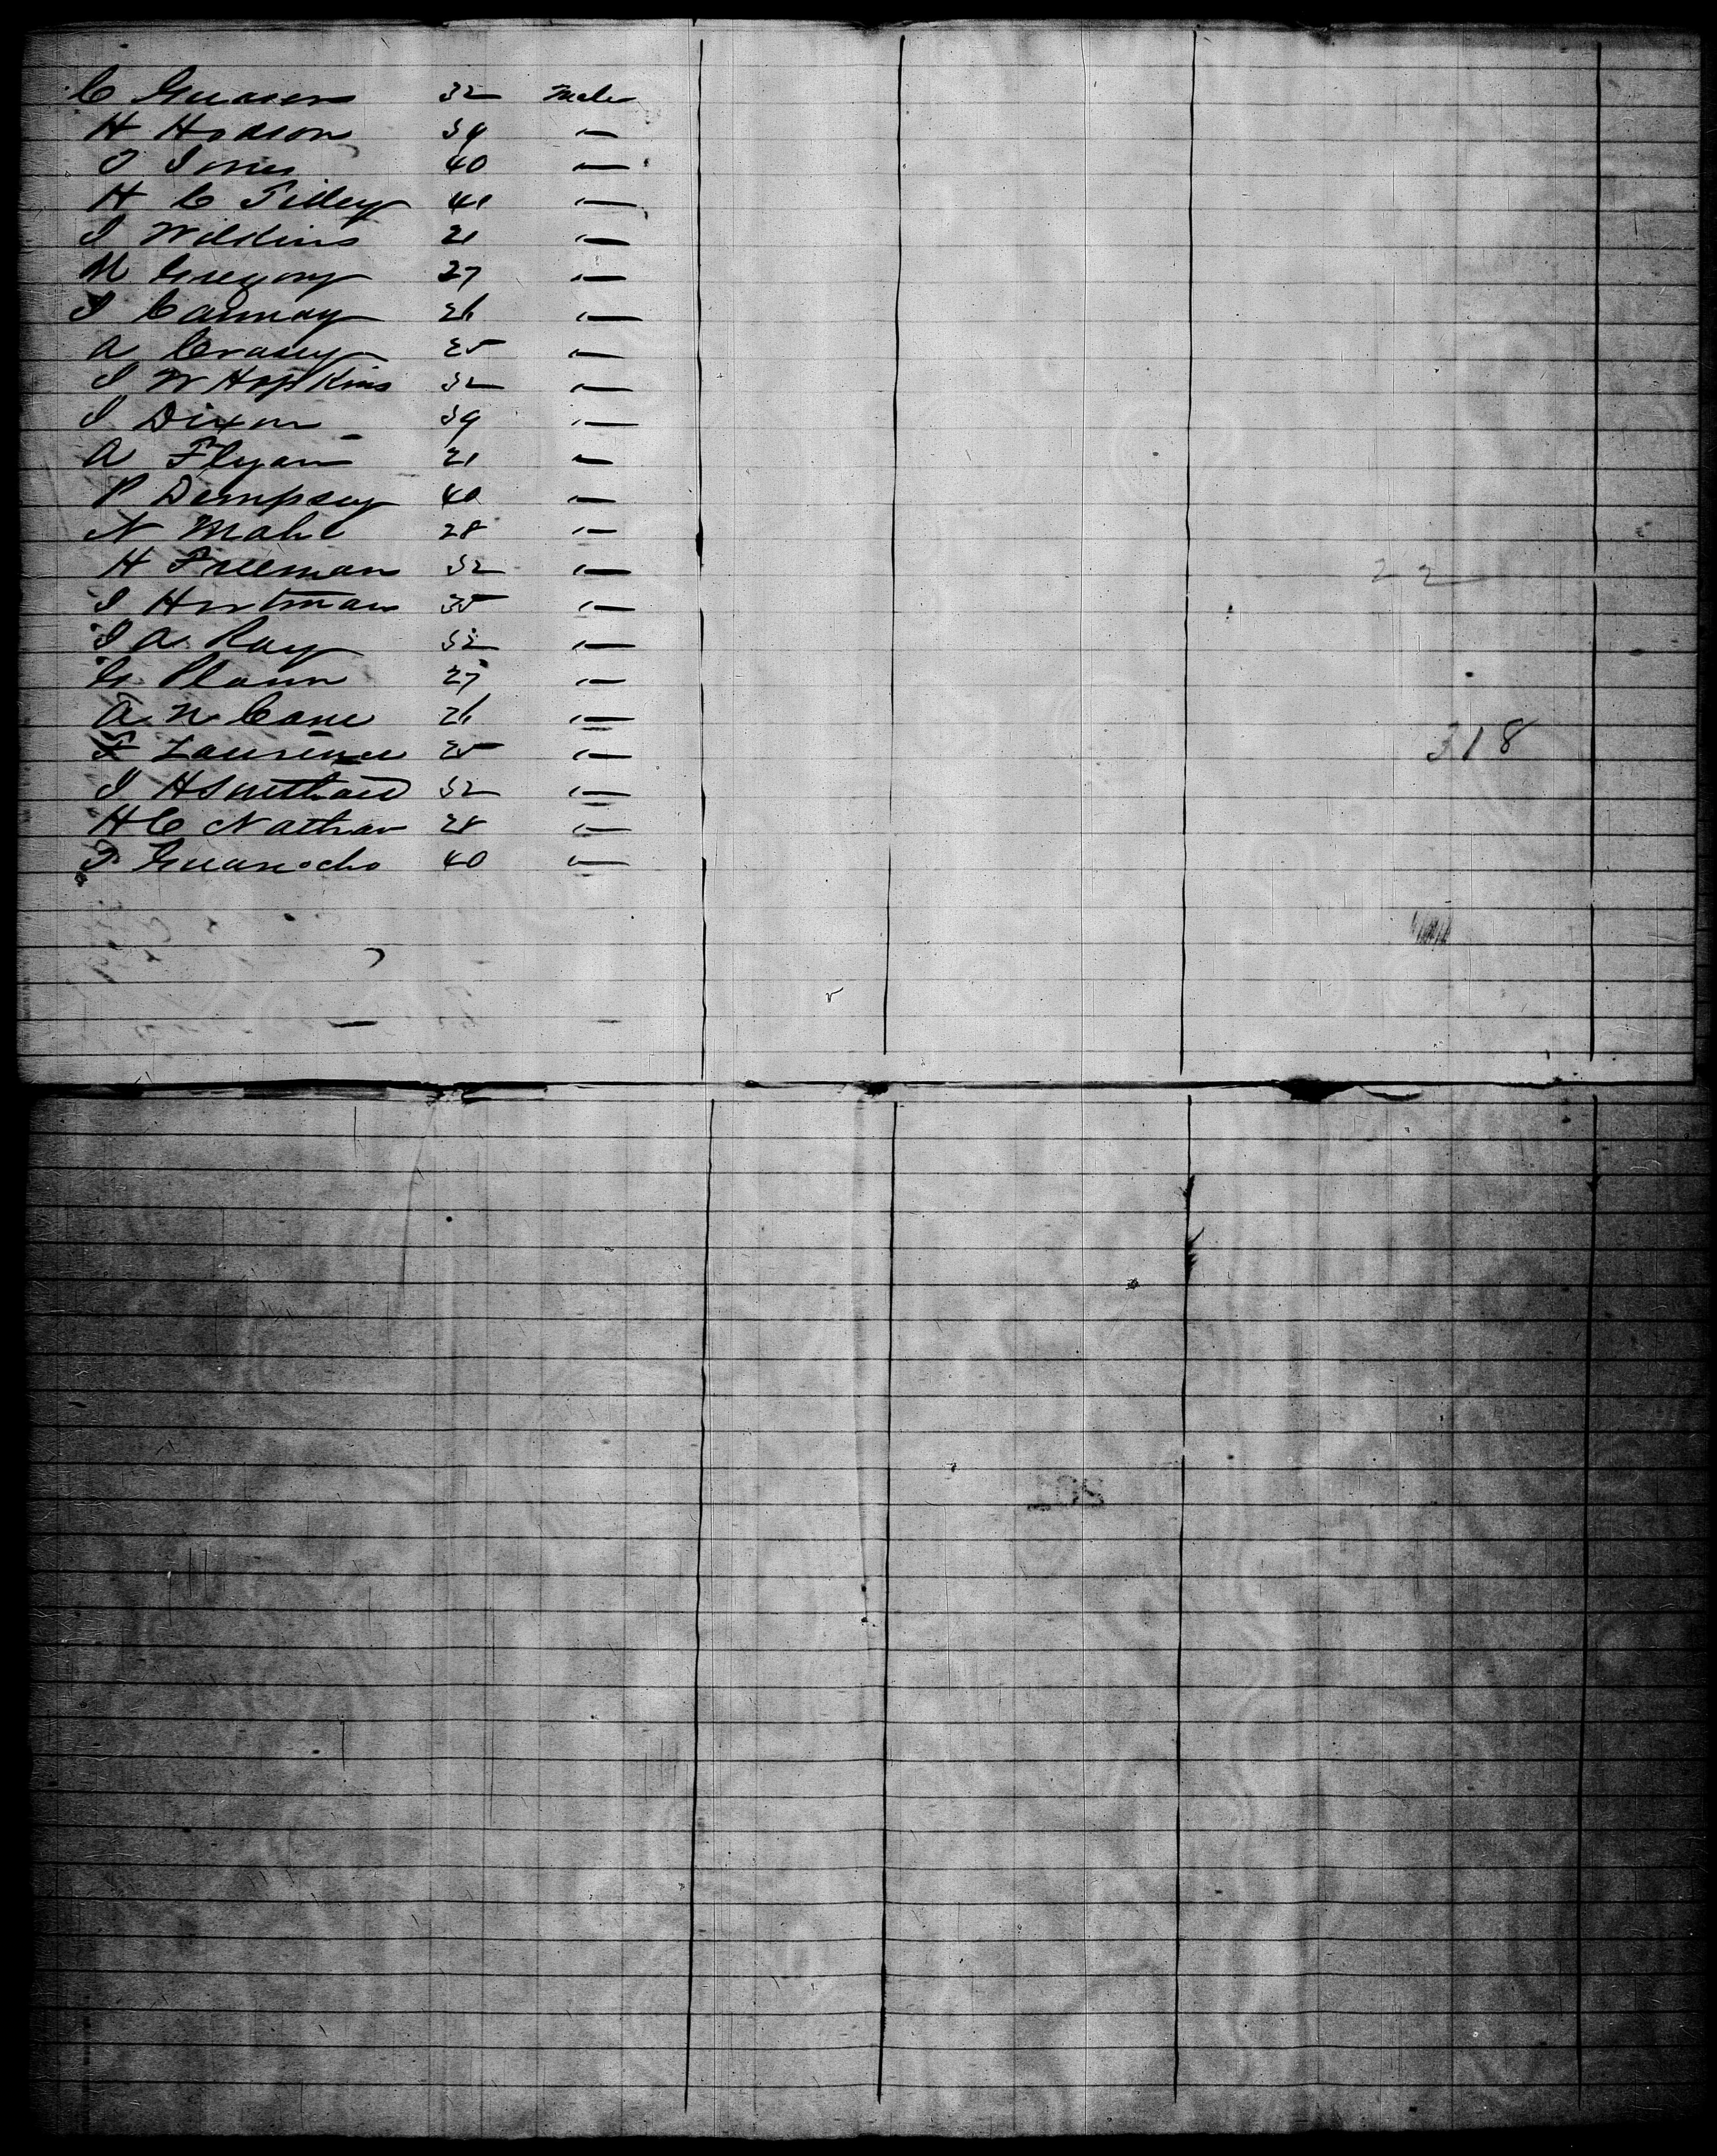 C 32 Male
H Hodson 39 "
J Jones 40 "
H C Tilley 41 "
J Wilkins 21 "
M Gregory 27 "
J Cannay 26 "
A Crasey 25 "
J W Hopkins 32 "
J Dixon 39 "
A Flyan 21 "
P Dempsey 40 "
N Mahe 28 "
H Freeman 32 "
22
J Hartman 35 "
J A Ray 32 "
G Plann 27 "
A N Cane 26 "
Laurence 25 "
318
J H Southard 32 "
H C Nathan 28 "
40 "